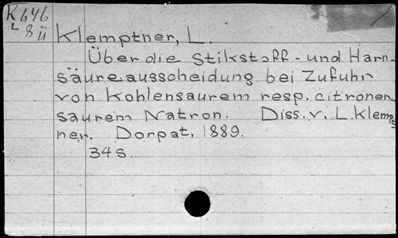 K646
L 8ü
Klemptner, L.
Über die Stikstoff- und Harn-
säureausscheidung bei Zufuhr
von kohlensaurem resp. citronen
saurem Natron. Diss. v. L. Klempt
ner. Dorpat, 1889.
34s.